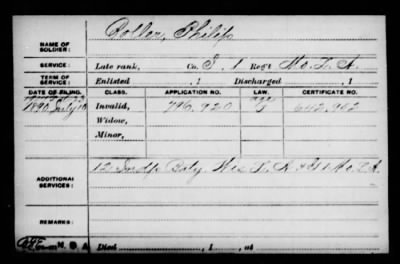 NAME OF SOLDIER: Doller, Philip
SERVICE: Late rank, Co. I. 1 Reg't Mo. L. A.
TERM OF SERVICE: Enlisted , 1 Discharged , 1
DATE OF FILING. CLASS. APPLICATION NO. LAW. CERTIFICATE NO.
1890, July 10 Invalid, 796.920 642.902
Widow,
Minor,
ADDITIONAL SERVICES: 12 Indp Baty. Wis L. A. & 1 Mo. L. A.
REMARKS:
N. S. A. Died , 1 , at